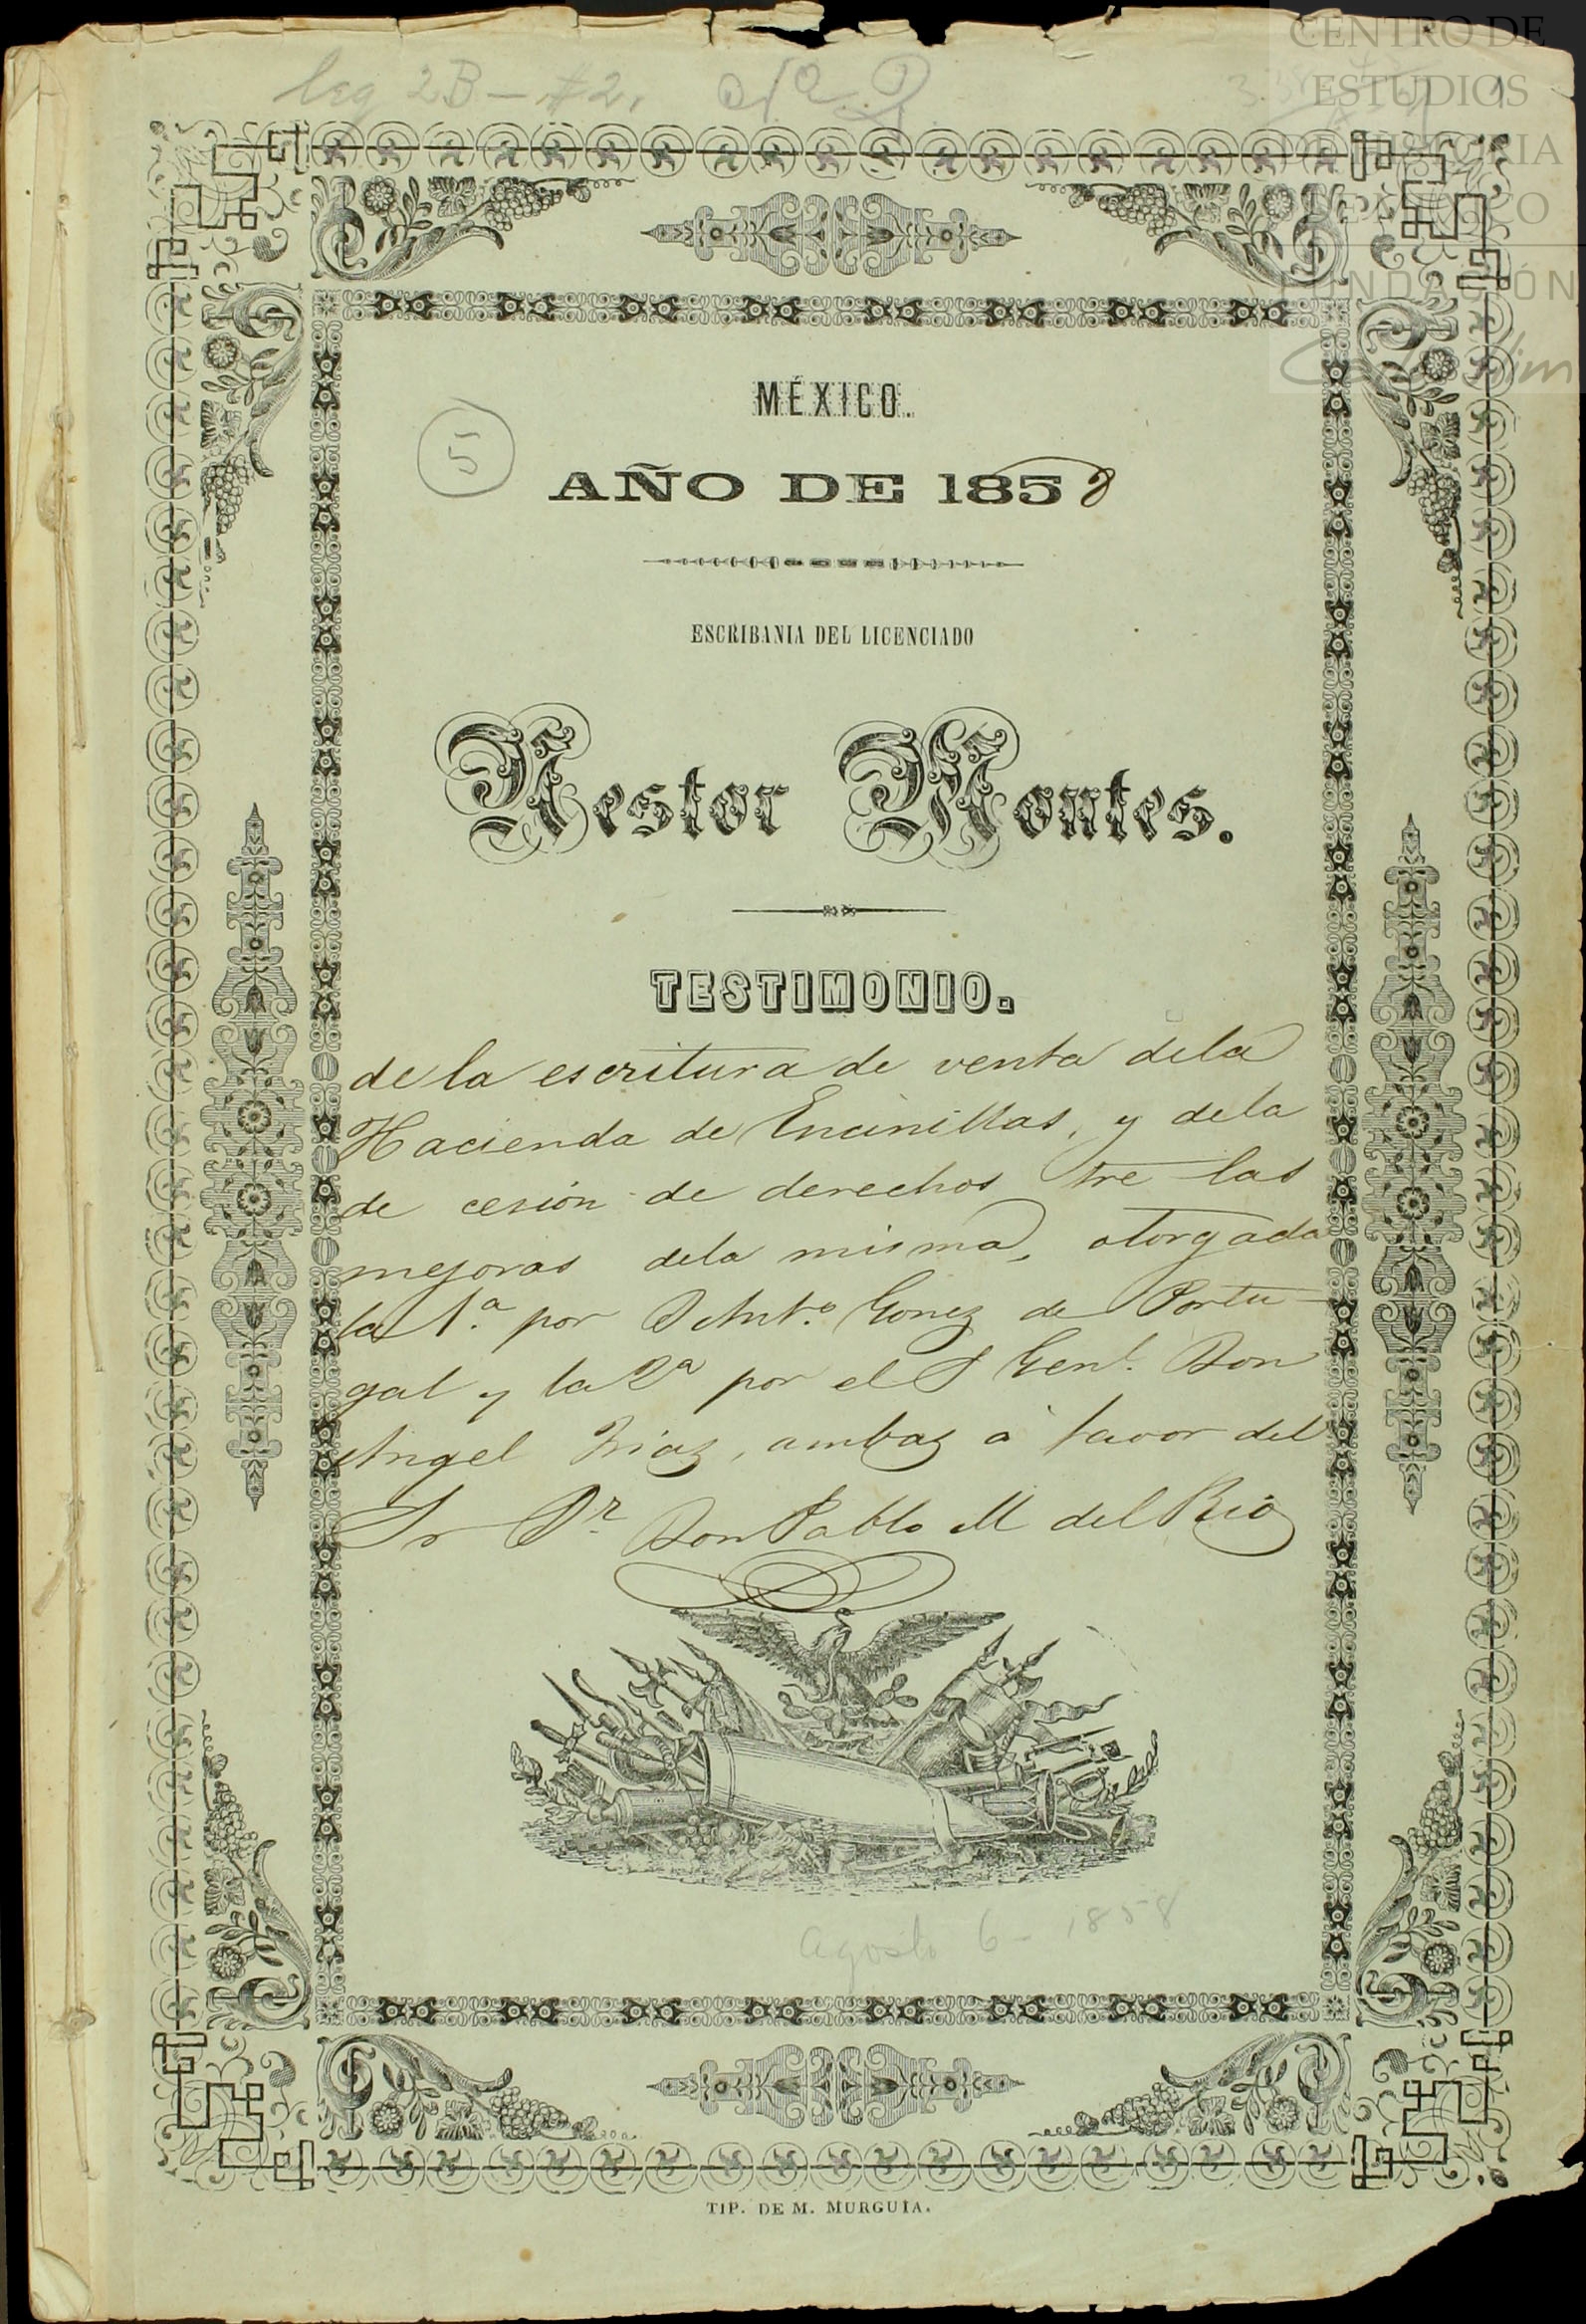 leg 2B - #2.
CENTRO DE
ESTUDIOS
DE HISTORIA
DE MÉXICO
FUNDACIÓN
MÉXICO.
5
AÑO DE 1858
ESCRIBANIA DEL LICENCIADO
Nestor Montes.
TESTIMONIO.
de la escritura de venta dela
Hacienda de Encinillas, y dela
de cesion de derechos tre las
mejoras dela misma, otorgada
la 1.ª por D Ant.º Gonez de Portu
gal y la 2ª por el S Genl. Don
Angel Frias, ambas a favor del
Sr Dr. Don Pablo M del Rio
Agosto 6 - 1858
TIP. DE M. MURGUÍA.